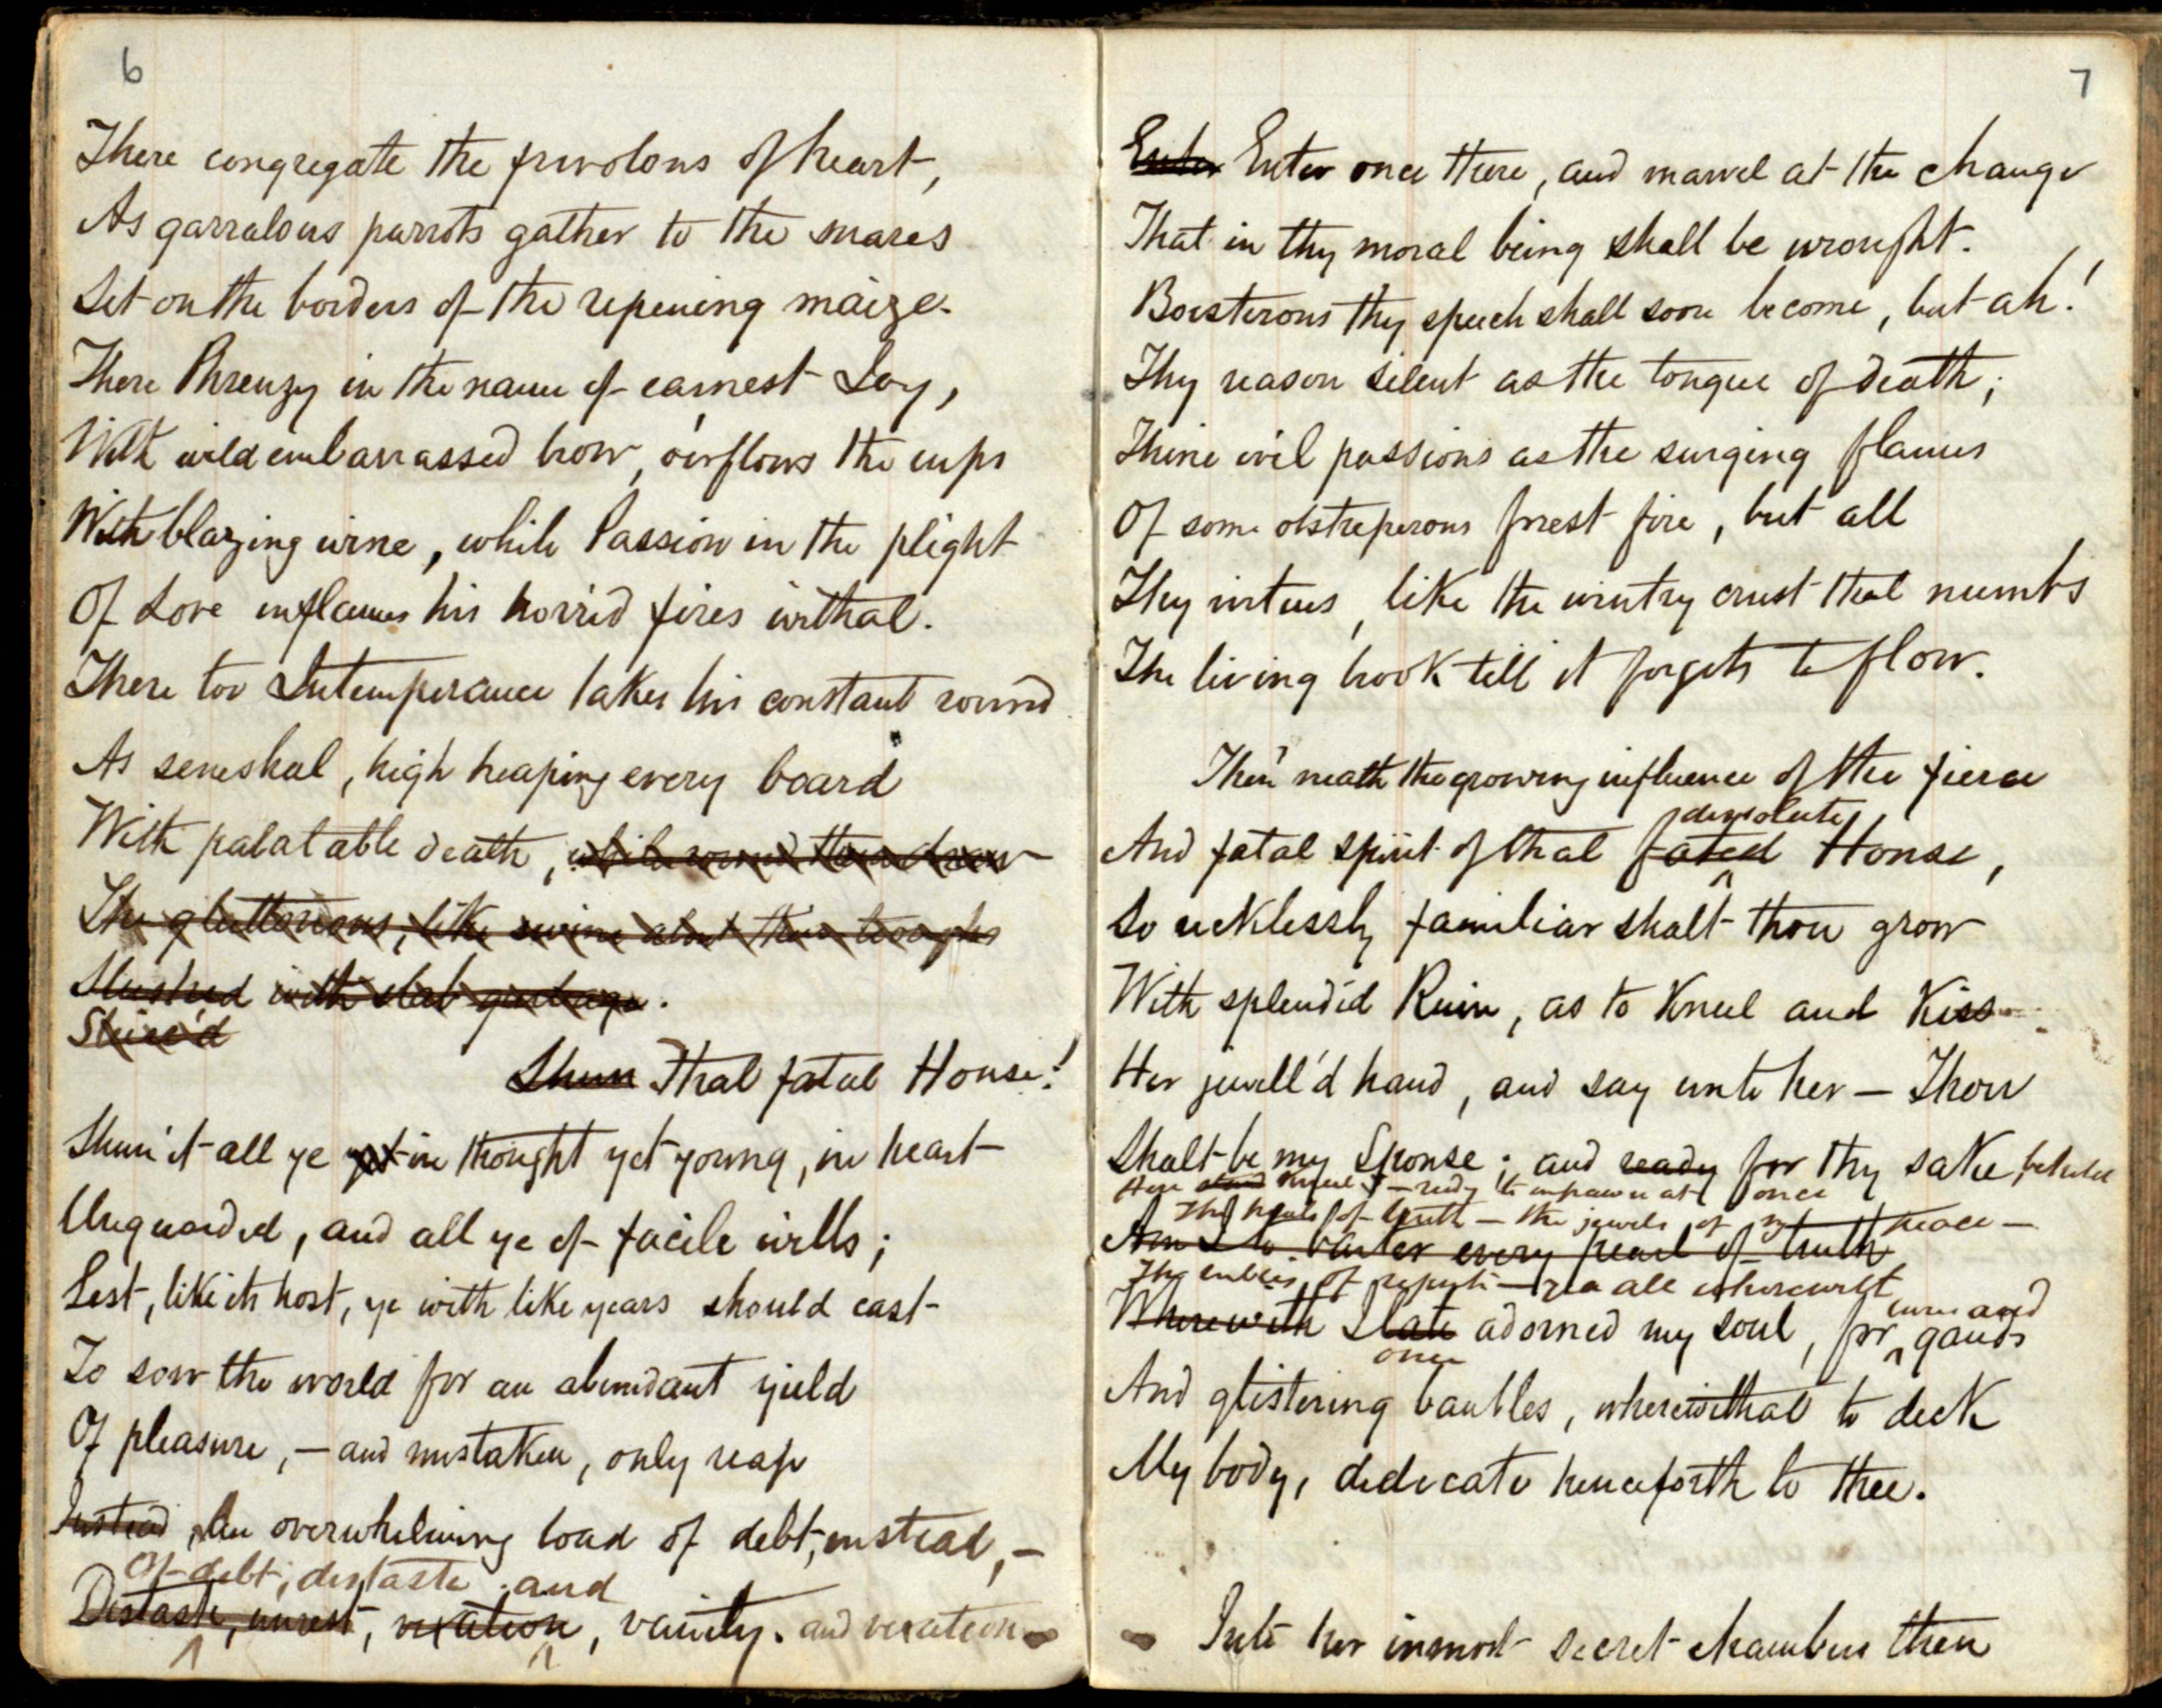 6
There congregate the frivolous of heart,
As garralous parrots gather to the snares
Set on the borders of the ripening maize.
There Phrenzy in the name of earnest Joy,
With wild embarrassed brow, o'erflows the cups
With blazing wine, while Passion in the plight
Of Love inflames his horrid fires withal.
There too Intemperance takes his constant round
As seneshal, high heaping every board
With palatable death, while round them draw
The gluttonous, like swine about their troughs
Slushed with slab garbage.
Stive'd
Shun That fatal House!
Shun it all ye yet in thought yet young, in heart
Unguarded, and all ye of facile wills;
Lest, like its host, ye with like years should cast
To sow the world for an abundant yield
Of pleasure, — and mistaken, only reap
Instead, An overwhelming load of debt, instead, —
Of debt, distaste, and
Distaste, unrest, vexation, vanity. and vexation
7
Enter Enter once there, and marvel at the change
That in thy moral being shall be wrought.
Boisterous thy speech shall soon become, but ah!
Thy reason silent as the tongue of death;
Thine evil passions as the surging flames
Of some obstreperous forest fire, but all
Thy virtues, like the wintry crust that numbs
The living brook till it forgets to flow.
Then 'neath the growing influence of the fierce
desolate
And fatal spirit of that fated House,
So recklessly familiar shalt thou grow
With splendid Ruin, as to kneel and kiss
Her jewell'd hand, and say unto her — Thou
Shalt be my Spouse; and ready for thy sake, behold
Here stand kneel I — ready to impawn at once
The pearls of truth — the jewels of my peace —
Am I to barter every pearl of truth
The rubies of — yea all wherewith
Wherewith I late adorned my soul, for gauds
once
And glistering baubles, wherewithal to deck
My body, dedicate henceforth to thee.
Into her inmost secret chambers then